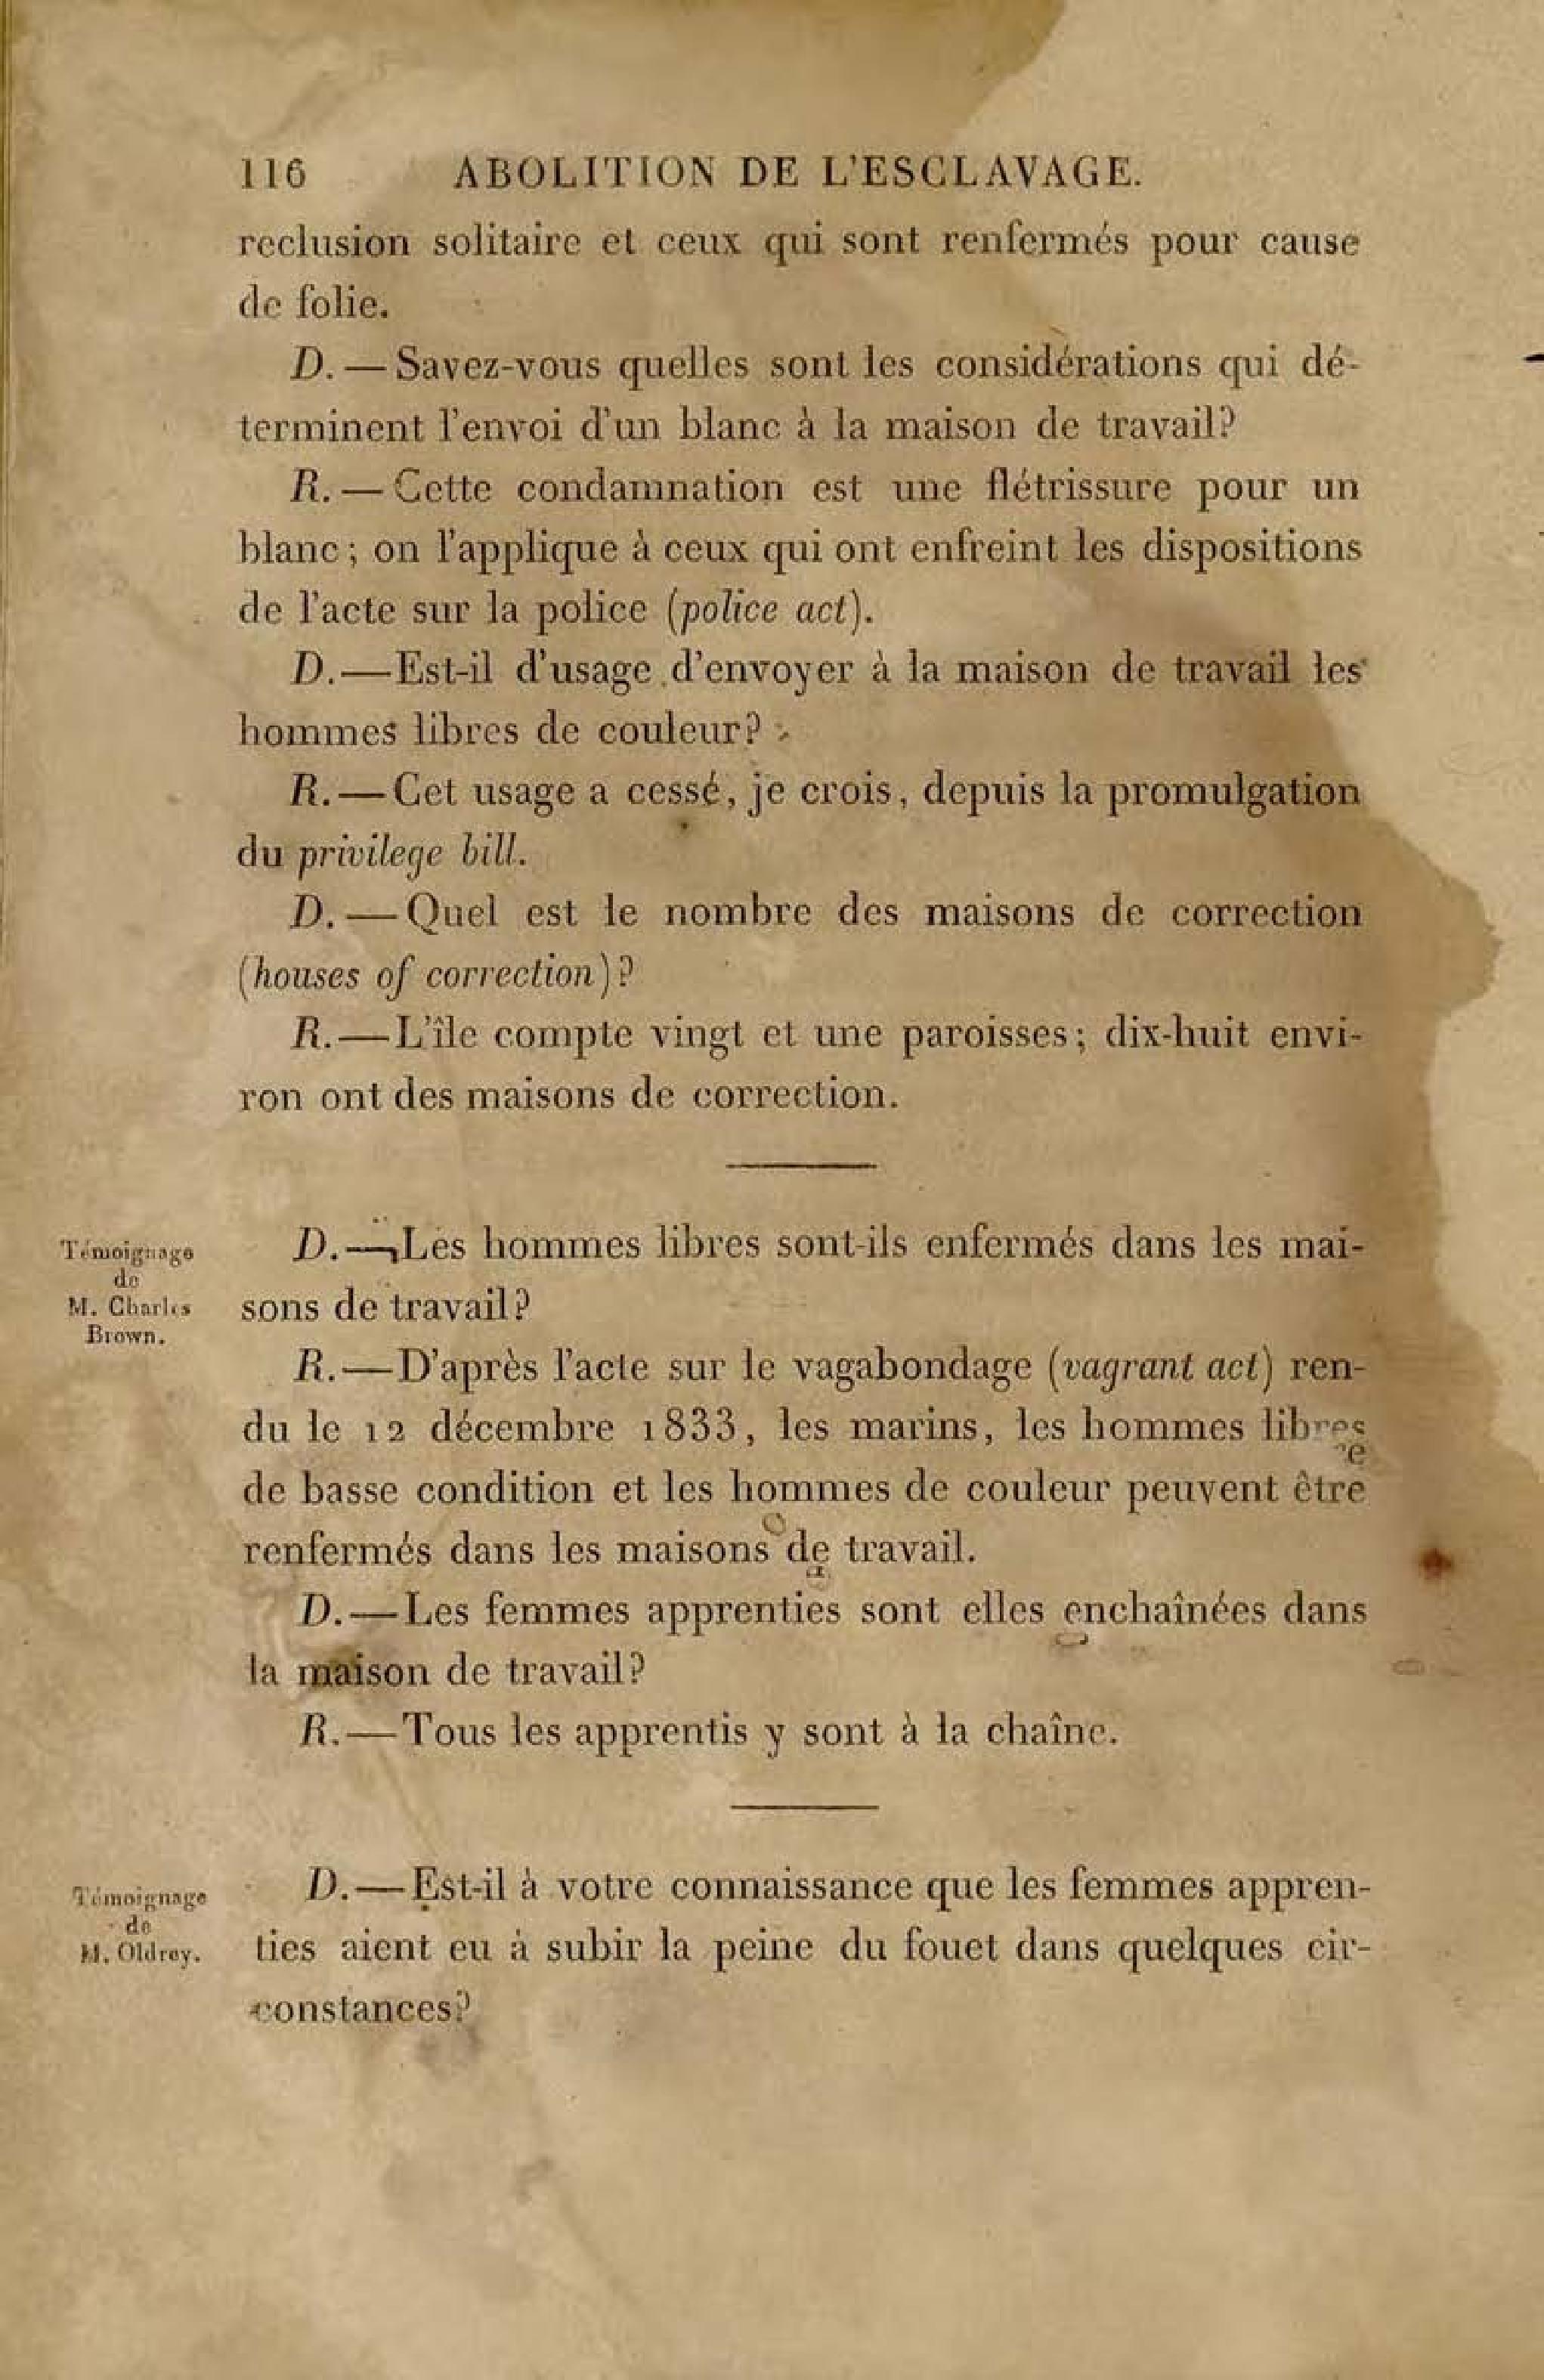 116 ABOLITION DE L'ESCLAVAGE.
reclusion solitaire et ceux qui sont renfermés pour cause
de folie.
D. — Savez-vous quelles sont les considérations qui dé-
terminent l'envoi d'un blanc à la maison de travail?
R. — Cette condamnation est une flétrissure pour un
blanc; on l'applique à ceux qui ont enfreint les dispositions
de l'acte sur la police (police act).
D. — Est-il d'usage d'envoyer à la maison de travail les
hommes libres de couleur?
R. — Cet usage a cessé, je crois, depuis la promulgation
du privilege bill.
D. — Quel est le nombre des maisons de correction
(houses of correction)?
R. — L'île compte vingt et une paroisses; dix-huit envi-
ron ont des maisons de correction.
Témoignage
de
M. Charles
Brown.
D. — Les hommes libres sont-ils enfermés dans les mai-
sons de travail?
R. — D'après l'acte sur le vagabondage (vagrant act) ren-
du le 12 décembre 1833, les marins, les hommes libres
de basse condition et les hommes de couleur peuvent être
renfermés dans les maisons de travail.
D. — Les femmes apprenties sont elles enchaînées dans
la maison de travail?
R. — Tous les apprentis y sont à la chaîne.
Témoignage
de
M. Oldrey.
D. — Est-il à votre connaissance que les femmes appren-
ties aient eu à subir la peine du fouet dans quelques cir-
constances?